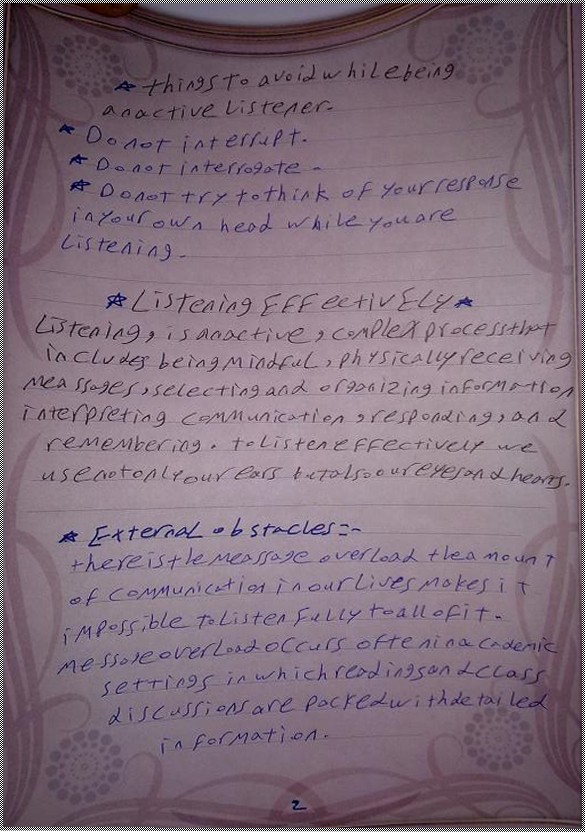 * things to avoid while being
an active listener.
* Do not interrupt.
* Do not interrogate -
* Do not try to think of your response
in your own head while you are
listening.
* Listening Effectively *
Listening, is an active, complex process that
includes being mindful, physically receiving
meassages, selecting and organizing information
interpreting communication, responding, and
remembering. to listen effectively we
use not only our ears but also our eyes and hearts.
* External obstacles:-
there is the meassage overload the amount
of communication in our lives makes it
impossible to listen fully to all of it.
Message overload occurs often in academic
settings in which readings and class
discussions are packed with detailed
information.
2